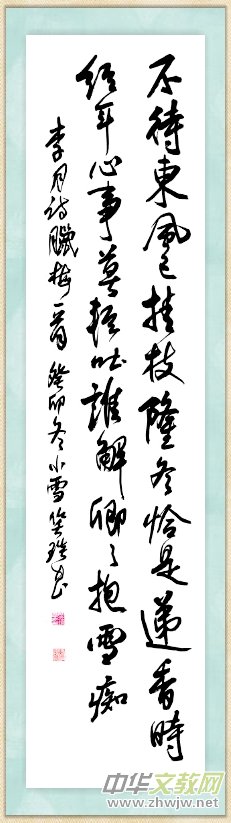 不待東風已挂枝隆冬恰是遞香時
經年心事莫輕吐誰解卿々抱雪痴
李月詩臘梅一首 癸卯冬小雪
中华文教网
www.zhwjw.net